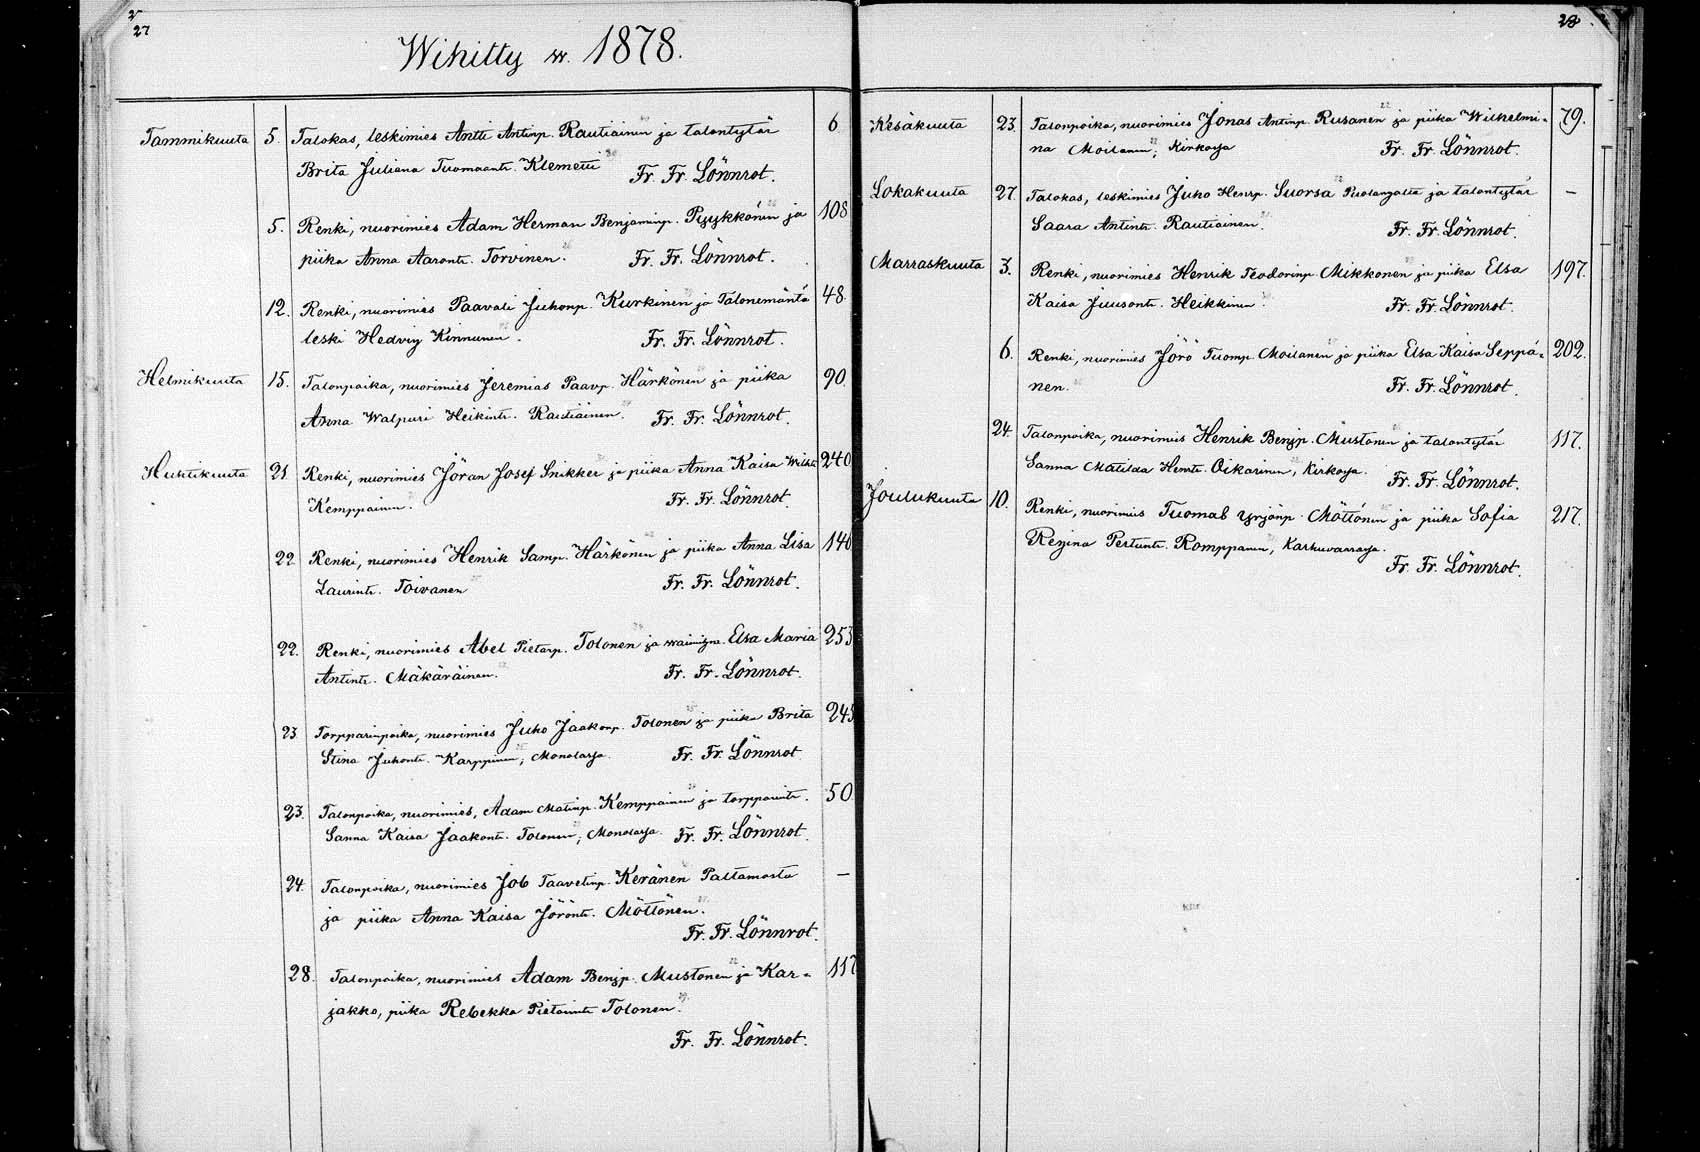 27
Wihitty w. 1878.
Tammikuuta 5. Talokas, leskimies Antti Antinp. Rautiainen ja talontytär 6
Brita Juliana Tuomaantr. Klemetti Fr. Fr. Lönnrot.
5. Renki, nuorimies Adam Herman Benjaminp. Pyykkönen ja 108
piika Anna Aarontr. Torvinen. Fr. Fr. Lönnrot.
12. Renki, nuorimies Paavali Juhonp. Kurkinen ja Talonemäntä 48.
leski Hedvig Kinnunen. Fr. Fr. Lönnrot.
Helmikuuta 15. Talonpoika, nuorimies Jeremias Paavp. Härkönen ja piika 90.
Anna Walpuri Heikintr. Rautiainen. Fr. Fr. Lönnrot.
Huhtikuuta 21. Renki, nuorimies Jöran Josef Snikker ja piika Anna Kaisa 240
Kemppainen. Fr. Fr. Lönnrot.
22. Renki, nuorimies Henrik Samp. Härkönen ja piika Anna Lisa 146
Laurintr. Toivanen Fr. Fr. Lönnrot.
22. Renki, nuorimies Abel Pietarp. Tolonen ja Elsa Maria 253
Antintr. Mäkäräinen. Fr. Fr. Lönnrot.
23. Torpparinpoika, nuorimies Juho Jaakonp. Tolonen ja piika Brita 245
Stina Juhontr. Karppinen, Manolasja. Fr. Fr. Lönnrot.
23. Talonpoika, nuorimies, Adam Matinp. Kemppainen ja torpparintr. 50.
Sanna Kaisa Jaakontr. Tolonen, Manolasja. Fr. Fr. Lönnrot.
24. Talonpoika, nuorimies Job Taavetinp. Keränen Paltamosta —
ja piika Anna Kaisa Jöröntr. Möttönen.
Fr. Fr. Lönnrot.
28. Talonpoika, nuorimies Adam Benjp. Mustonen ja Kar- 117
jakko, piika Rebekka Pietarintr. Tolonen.
Fr. Fr. Lönnrot.
28
Kesäkuuta 23. Talonpoika, nuorimies Jonas Antinp. Rusanen ja piika Wilhelmi- 79.
na Moilanen, Kirkonja Fr. Fr. Lönnrot.
Lokakuuta 27. Talokas, leskimies Juho Henrp. Suorsa Puolangalta ja talontytär —
Saara Antintr. Rautiainen. Fr. Fr. Lönnrot.
Marraskuuta 3. Renki, nuorimies Henrik Teodorinp. Mikkonen ja piika Elsa 197.
Kaisa Juusontr. Heikkinen. Fr. Fr. Lönnrot.
6. Renki, nuorimies Jörö Tuomp. Moilanen ja piika Elsa Kaisa Seppä- 202.
nen. Fr. Fr. Lönnrot.
24. Talonpoika, nuorimies Henrik Benjp. Mustonen ja talontytär 117.
Sanna Matilda Henrtr. Oikarinen, Kirkonja. Fr. Fr. Lönnrot.
Joulukuuta 10. Renki, nuorimies Tuomas Yrjönp. Möttönen ja piika Sofia 217.
Regina Perttuntr. Romppanen, Karhuvaarasja.
Fr. Fr. Lönnrot.